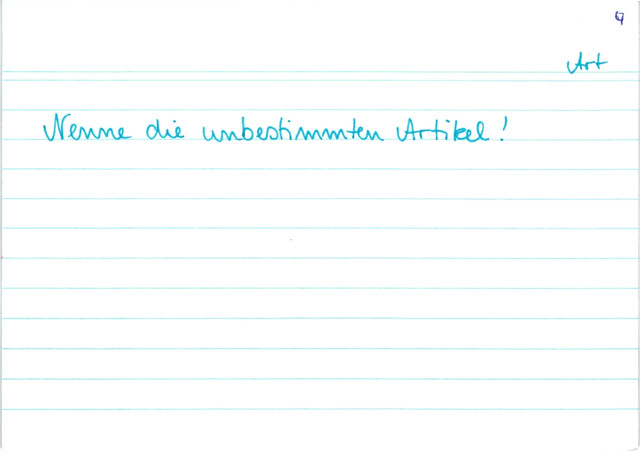 4
Art
Nenne die unbestimmten Artikel!